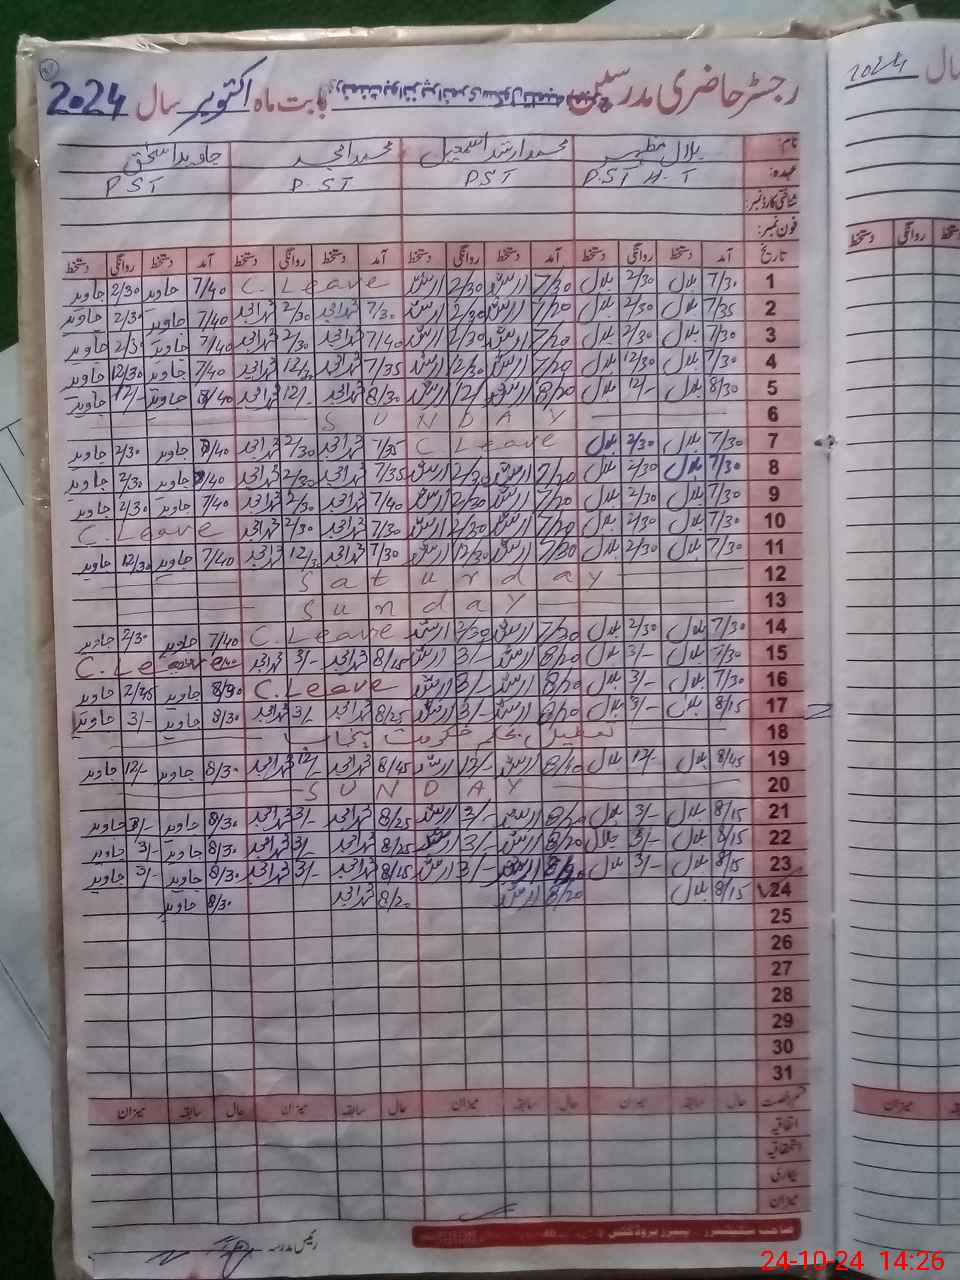 رجسٹر حاضری مدرسین بابت ماہ اکتوبر سال 2024
نام: بلال محمد ارشد اسمٰعیل محمد امجد جاوید اسحٰق
عہدہ: P.S.T H.T P.S.T P.S.T P.S.T
شناختی کارڈ نمبر:
فون نمبر:
تاریخ آمد دستخط روانگی دستخط آمد دستخط روانگی دستخط آمد دستخط روانگی دستخط آمد دستخط روانگی دستخط
1 7/30 بلال 2/30 بلال 7/30 ارشد 2/30 ارشد C. Leave 7/40 جاوید 2/30 جاوید
2 7/35 بلال 2/30 بلال 7/20 ارشد 2/30 ارشد 7/30 محمد امجد 2/30 محمد امجد 7/40 جاوید 2/30 جاوید
3 7/30 بلال 2/30 بلال 7/20 ارشد 2/30 ارشد 7/40 محمد امجد 2/30 محمد امجد 7/40 جاوید 2/30 جاوید
4 7/30 بلال 12/30 بلال 7/20 ارشد 12/30 ارشد 7/35 محمد امجد 12/30 محمد امجد 7/40 جاوید 12/30 جاوید
5 8/30 بلال 12/- بلال 8/20 ارشد 12/- ارشد 8/30 محمد امجد 12/- محمد امجد جاوید 12/- جاوید
6 SUNDAY
7 7/30 بلال 2/30 بلال C. Leave 7/35 محمد امجد 2/30 محمد امجد 7/40 جاوید 2/30 جاوید
8 7/30 بلال 2/30 بلال 7/20 ارشد 2/30 ارشد 7/35 محمد امجد 2/30 محمد امجد 7/40 جاوید 2/30 جاوید
9 7/30 بلال 2/30 بلال 7/20 ارشد 2/30 ارشد 7/40 محمد امجد 2/30 محمد امجد 7/40 جاوید 2/30 جاوید
10 7/30 بلال 2/30 بلال 7/20 ارشد 2/30 ارشد 7/30 محمد امجد 2/30 محمد امجد C. Leave
11 7/30 بلال 2/30 بلال 7/20 ارشد 12/30 ارشد 7/30 محمد امجد 12/30 محمد امجد 7/40 جاوید 12/30 جاوید
12 Saturday
13 Sunday
14 7/30 بلال 2/30 بلال 7/30 ارشد 2/30 ارشد C. Leave 7/40 جاوید 2/30 جاوید
15 7/30 بلال 3/- بلال 8/20 ارشد 3/- ارشد 8/15 محمد امجد 3/- محمد امجد C. Leave
16 7/30 بلال 3/- بلال 8/20 ارشد 3/- ارشد C. Leave جاوید 2/45 جاوید
17 8/15 بلال 3/- بلال 8/20 ارشد 3/- ارشد 8/25 محمد امجد 3/- محمد امجد 8/30 جاوید 3/- جاوید
18 تعطیل بحکم حکومت پنجاب
19 8/45 بلال 12/- بلال 8/40 ارشد 12/- ارشد 8/45 محمد امجد 12/- محمد امجد 8/30 جاوید 12/- جاوید
20 SUNDAY
21 8/15 بلال 3/- بلال 8/20 ارشد 3/- ارشد 8/25 محمد امجد 3/- محمد امجد 8/30 جاوید 3/- جاوید
22 8/15 بلال 3/- بلال 8/20 ارشد 3/- ارشد 8/25 محمد امجد 3/- محمد امجد 8/30 جاوید 3/- جاوید
23 8/15 بلال 3/- بلال 8/20 ارشد 3/- ارشد 8/15 محمد امجد 3/- محمد امجد 8/30 جاوید 3/- جاوید
24 8/15 بلال 8/20 ارشد 8/20 محمد امجد 8/30 جاوید
25
26
27
28
29
30
31
قسم رخصت حال سابقہ میزان حال سابقہ میزان حال سابقہ میزان حال سابقہ میزان
اتفاقیہ
استحقاقیہ
بیماری
میزان
رئیس مدرسہ
سال 2024
آمد دستخط روانگی دستخط
میزان
24-10-24 14:26